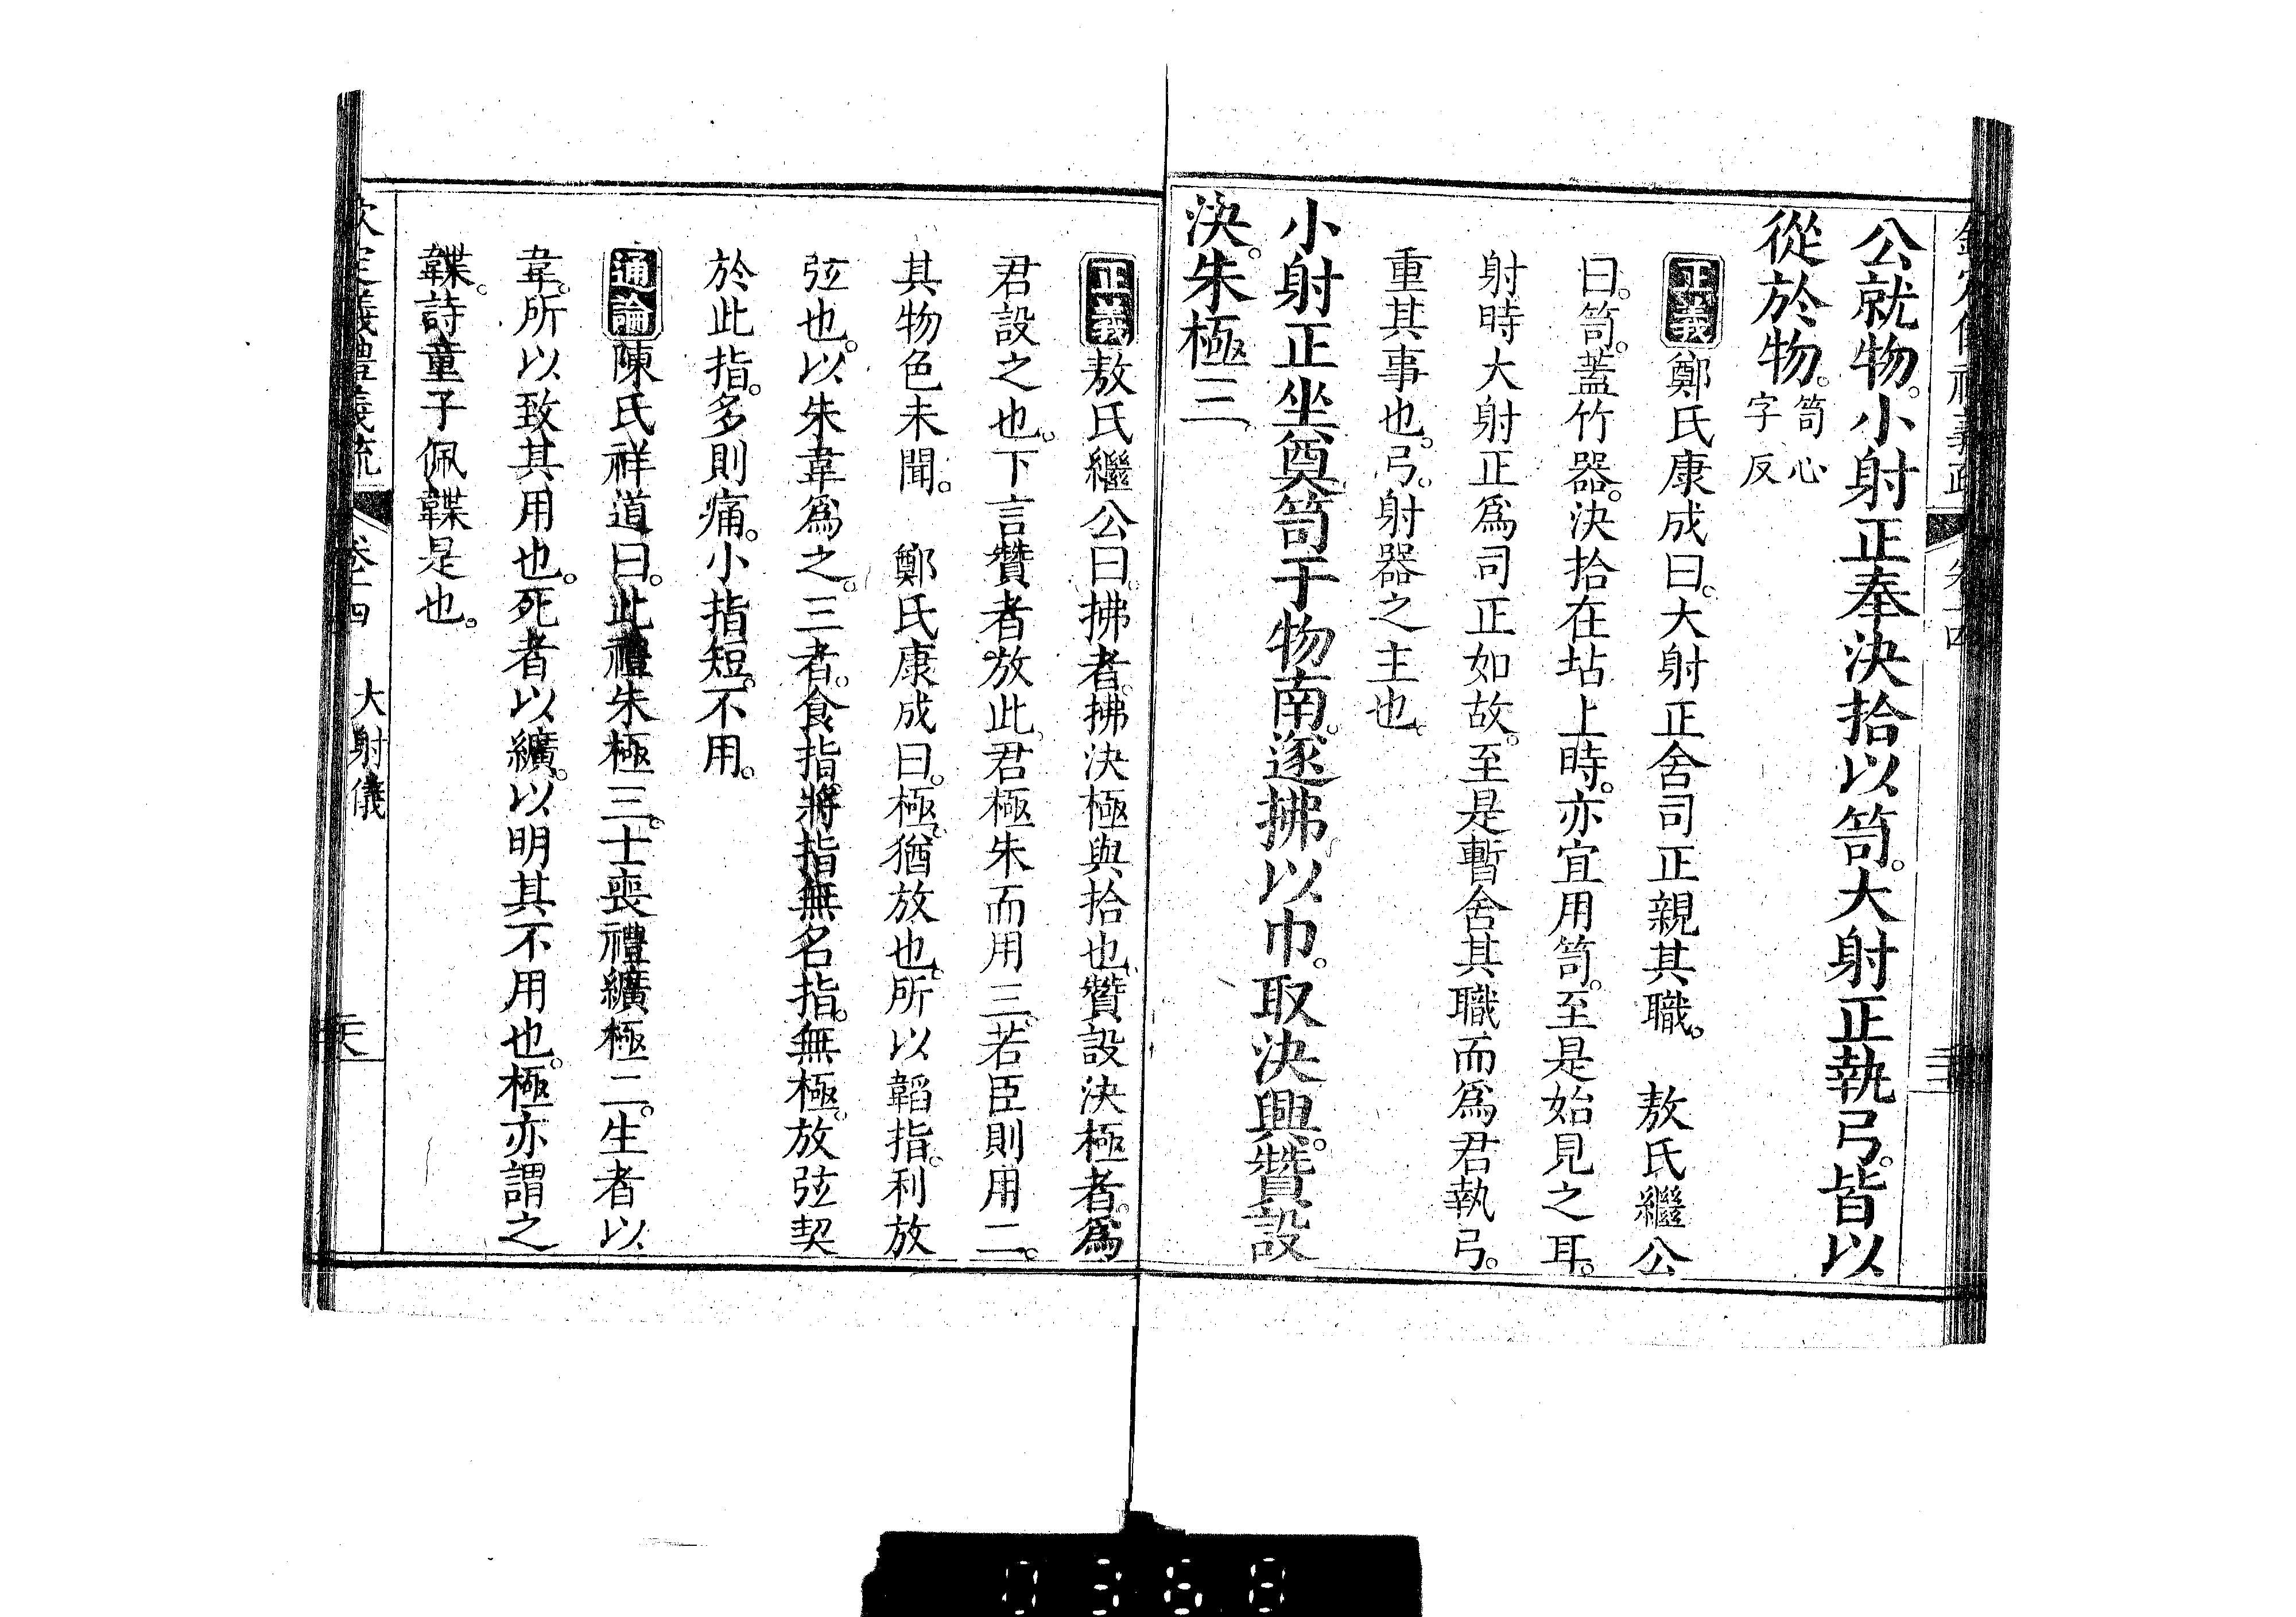 公就物。小射正奉決拾以笥。大射正執弓。皆以
從於物。笥心
字反
正義鄭氏康成曰。大射正舍司正親其職。　敖氏繼公
曰。笥。蓋竹器。決拾在坫上時。亦宜用笥。至是始見之耳。
射時大射正爲司正如故。至是暫舍其職而爲君執弓。
重其事也。弓。射器之主也。
小射正坐奠笥于物南。遂拂以巾。取決興。贊設
決。朱極三。
正義敖氏繼公曰。拂者。拂決極與拾也。贊設決極者。爲
君設之也。下言贊者放此。君極朱而用三。若臣則用二。
其物色未聞。　鄭氏康成曰。極。猶放也。所以韜指。利放
弦也。以朱韋爲之。三者。食指。將指。無名指。無極。放弦契
於此指。多則痛。小指短。不用。
通論陳氏祥道曰。此禮朱極三。士喪禮纊極二。生者以
韋。所以致其用也。死者以纊。以明其不用也。極亦謂之
韘。詩童子佩韘是也。
欽定儀禮義疏　卷十四　大射儀
0368